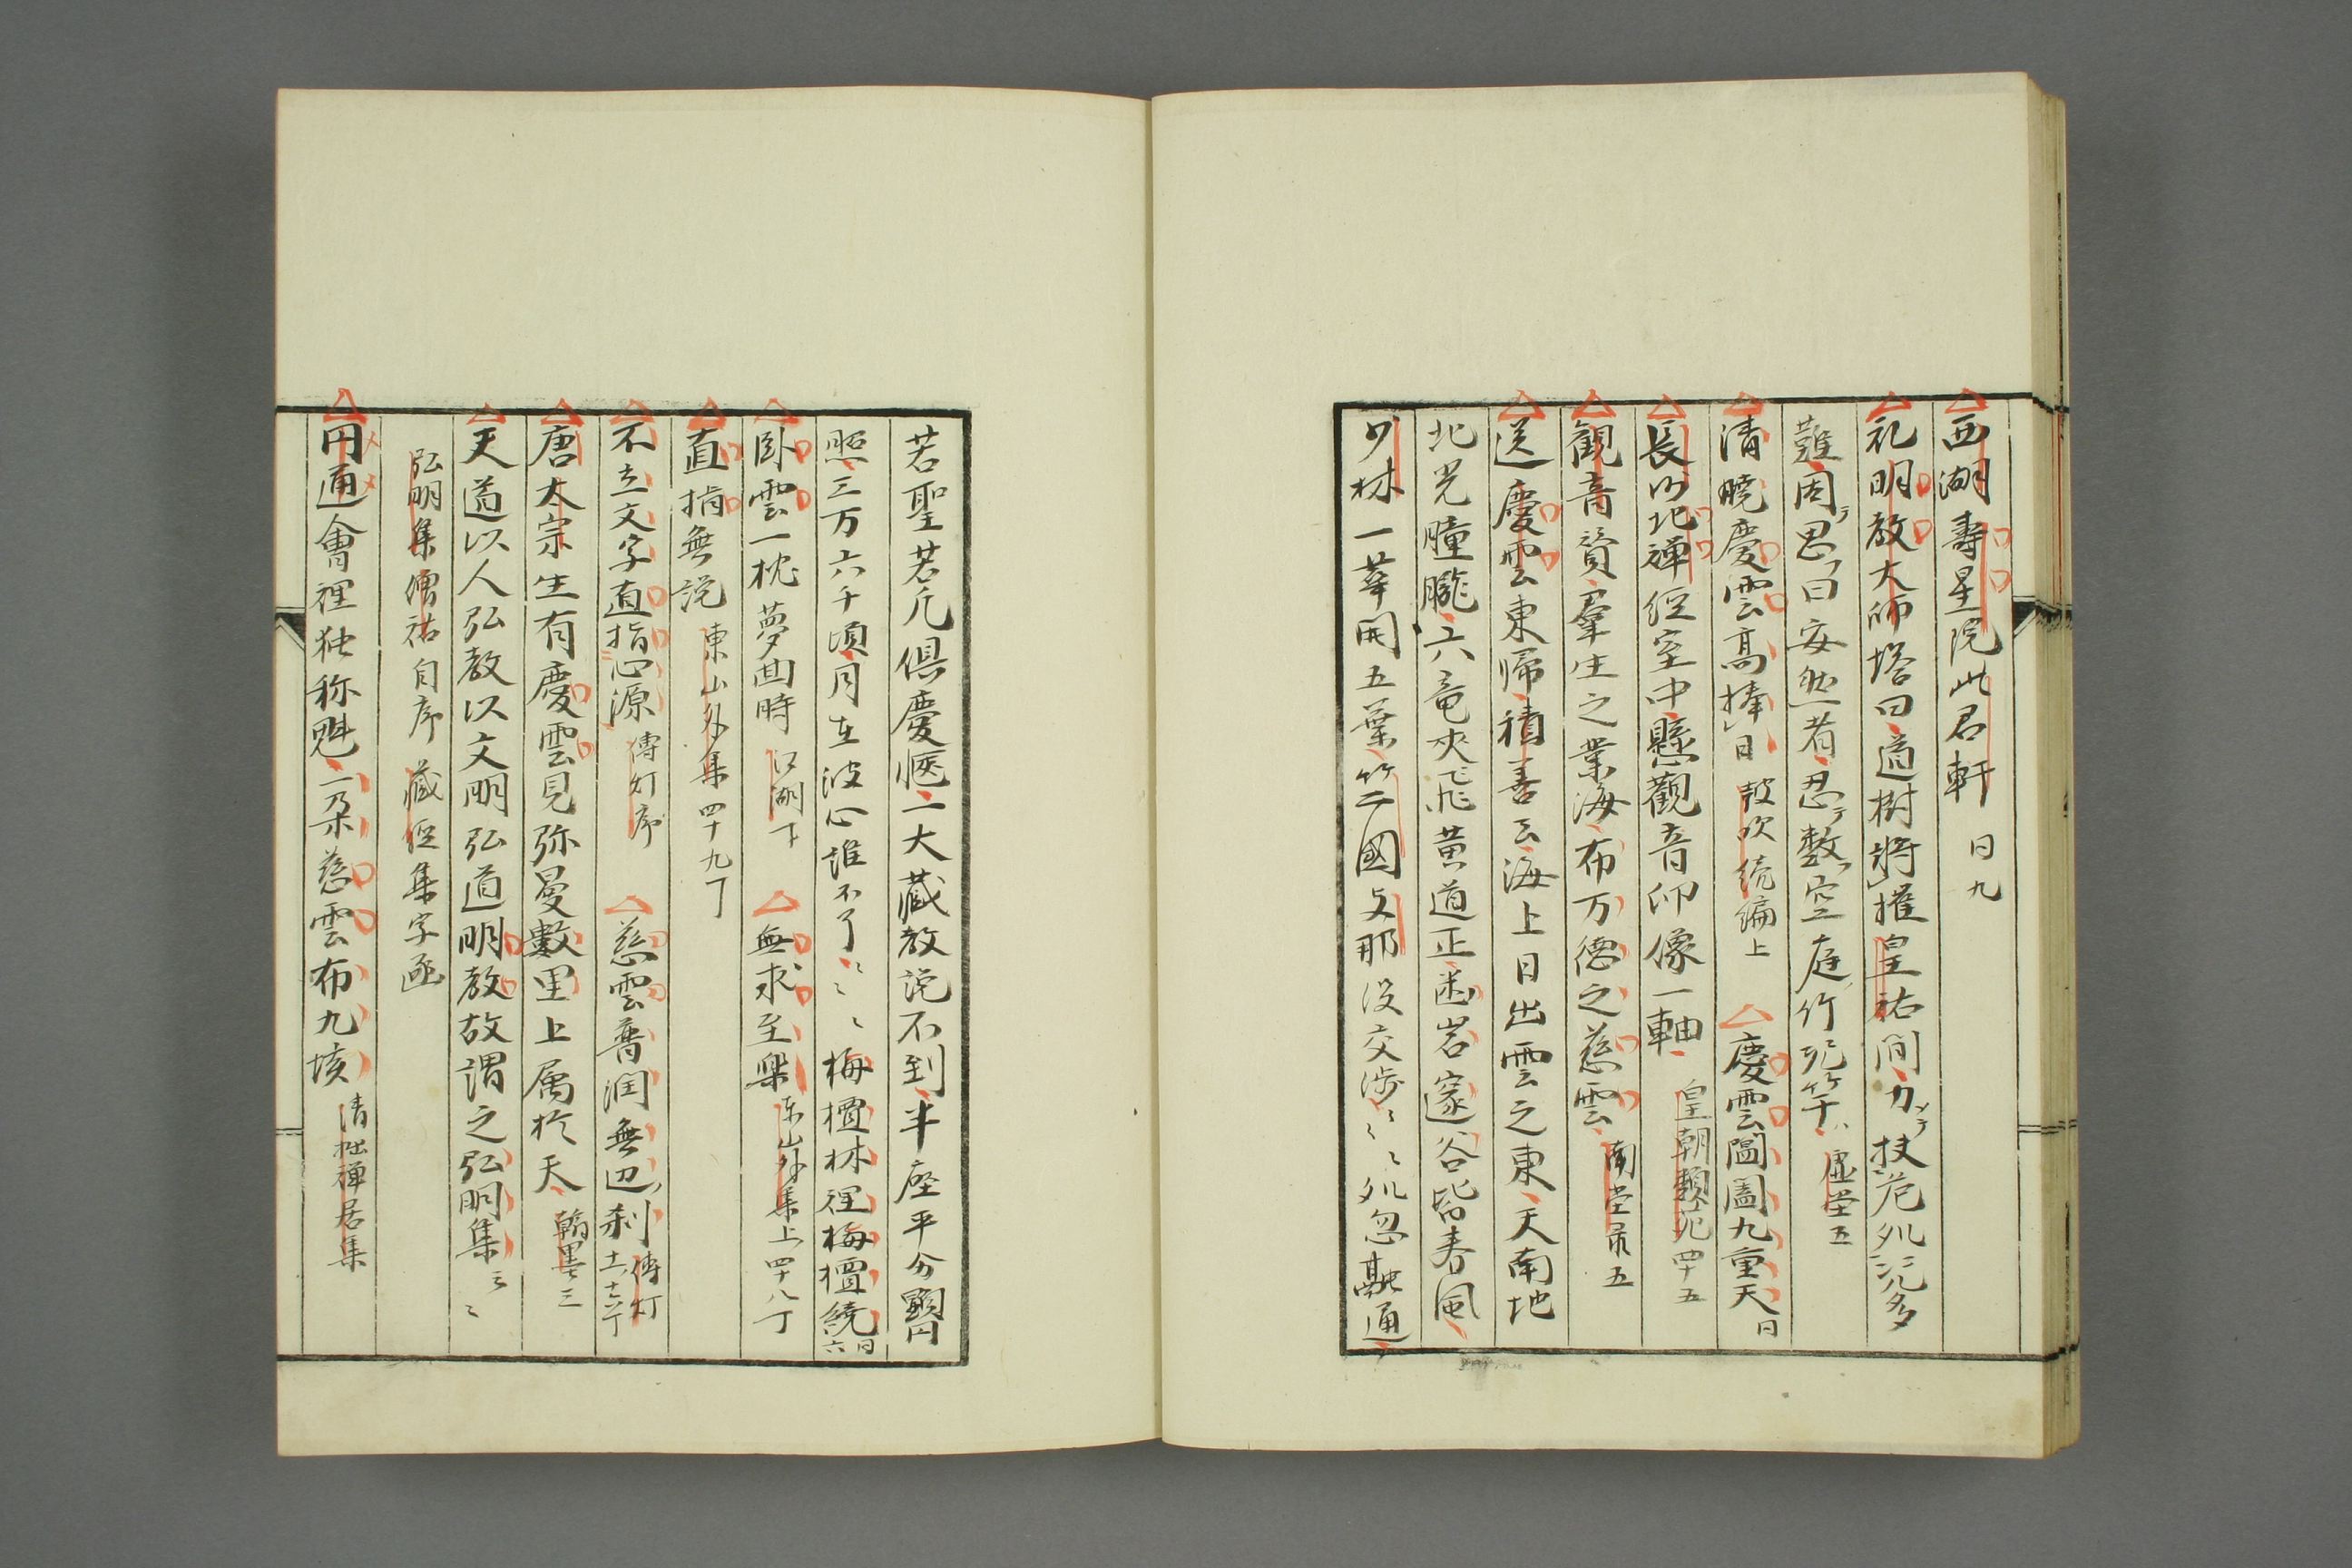 西湖壽星院此君軒 日九
礼明教大師塔曰道樹將摧皇祐間力扶危処済多
難周思曰安然者忍數空庭竹死竿 虚堂五
清曉慶雲高捧日 鼓吹続編上 慶雲圖闔九重天 日
長沙北禅経室中懸觀音印像一軸 皇朝類苑四十五
観音賛羣生之業海布万德之慈雲 南堂录五
送慶雲東帰積善云海上日出雲之東天南地
北光瞳朧六竜夾飛黄道正幽岩邃谷皆春風
少林一華開五葉竺国支那没交渉〻〻〻処忽融通
若聖若凡俱慶愜一大藏教説不到半座平分
照三万六千頃月在波心誰不了〻〻〻梅檀林裡梅檀繞 日六
臥雲一枕夢回時 江湖下 無求至樂 东山外集上四十八丁
直指無説 東山外集四十九丁
不立文字直指心源 傳灯序 慈雲普潤無辺刹 傳灯
唐太宗生有慶雲見弥曼數里上属於天 翰墨三
天道以人弘教以文明弘道明教故謂之弘明集〻〻
弘明集僧祐自序 藏経集字函
円通會裡独称魁一朵慈雲布九垓 清拙禅居集